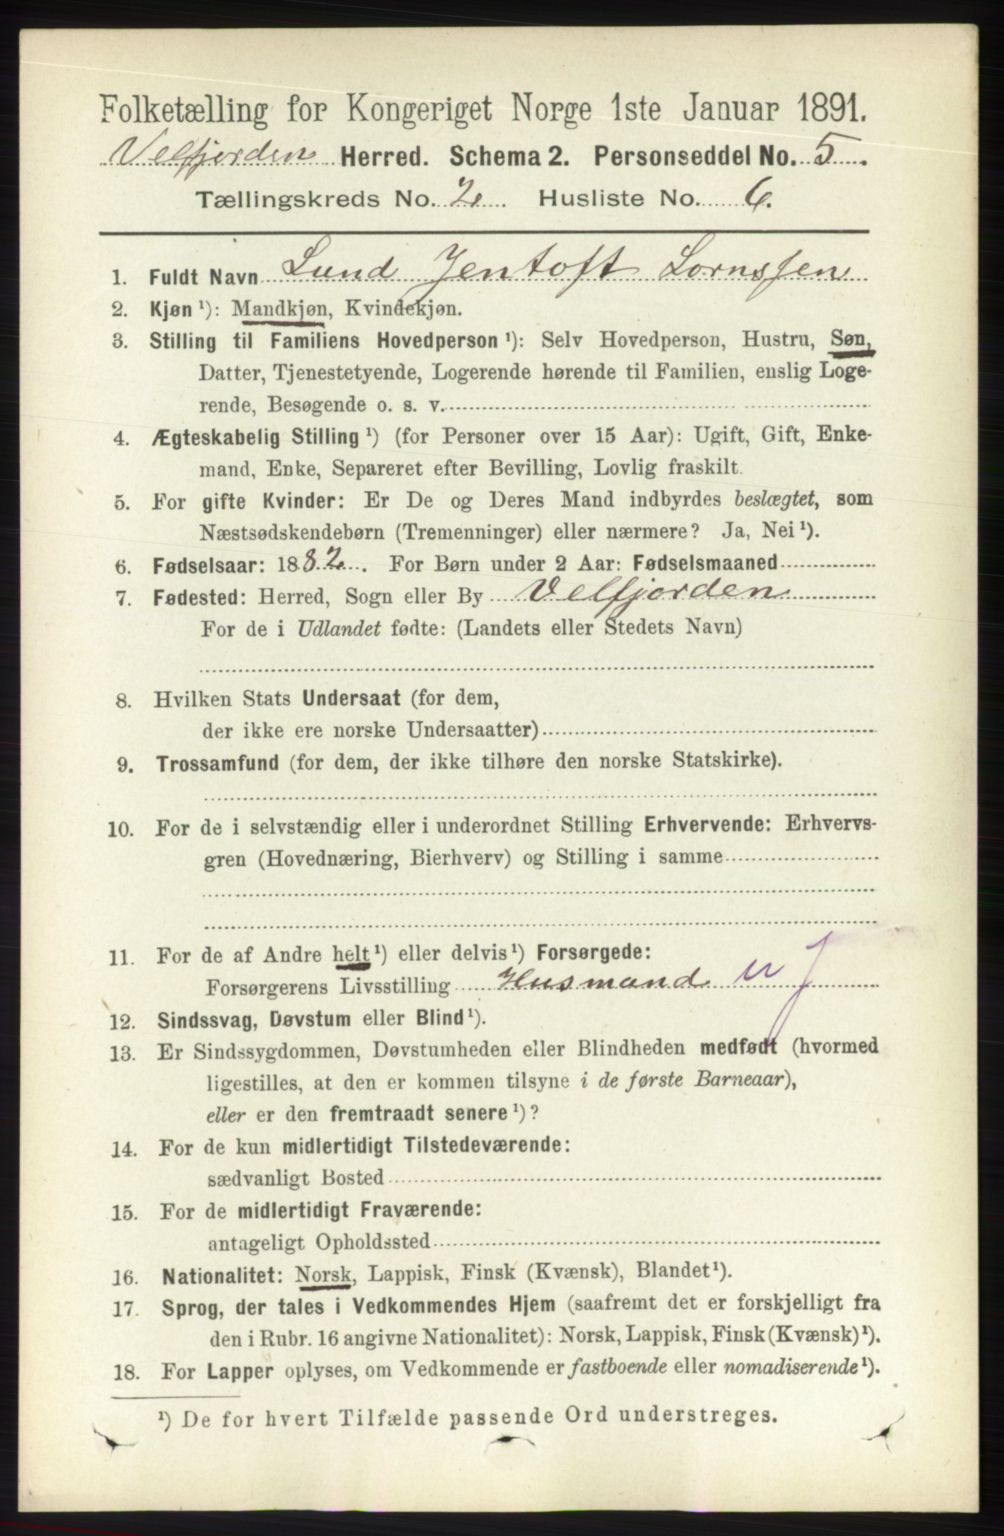 Folketælling for Kongeriget Norge 1ste Januar 1891.
Velfjorden Herred. Schema 2. Personseddel No. 5.
Tællingskreds No. 2. Husliste No. 6.
1. Fuldt Navn Lund Jentoft Lornssen
2. Kjøn ¹): Mandkjøn, Kvindekjøn.
3. Stilling til Familiens Hovedperson ¹): Selv Hovedperson, Hustru, Søn,
Datter, Tjenestetyende, Logerende hørende til Familien, enslig Loge-
rende, Besøgende o. s. v.
4. Ægteskabelig Stilling ¹) (for Personer over 15 Aar): Ugift, Gift, Enke-
mand, Enke, Separeret efter Bevilling, Lovlig fraskilt.
5. For gifte Kvinder: Er De og Deres Mand indbyrdes beslægtet, som
Næstsødskendebørn (Tremenninger) eller nærmere? Ja, Nei ¹).
6. Fødselsaar: 1882. For Børn under 2 Aar: Fødselsmaaned
7. Fødested: Herred, Sogn eller By Velfjorden
For de i Udlandet fødte: (Landets eller Stedets Navn)
8. Hvilken Stats Undersaat (for dem,
der ikke ere norske Undersaatter)
9. Trossamfund (for dem, der ikke tilhøre den norske Statskirke).
10. For de i selvstændig eller i underordnet Stilling Erhvervende: Erhvervs-
gren (Hovednæring, Bierhverv) og Stilling i samme
11. For de af Andre helt ¹) eller delvis ¹) Forsørgede:
Forsørgerens Livsstilling Husmand u J
12. Sindssvag, Døvstum eller Blind ¹).
13. Er Sindssygdommen, Døvstumheden eller Blindheden medfødt (hvormed
ligestilles, at den er kommen tilsyne i de første Barneaar),
eller er den fremtraadt senere ¹)?
14. For de kun midlertidigt Tilstedeværende:
sædvanligt Bosted
15. For de midlertidigt Fraværende:
antageligt Opholdssted
16. Nationalitet: Norsk, Lappisk, Finsk (Kvænsk), Blandet ¹).
17. Sprog, der tales i Vedkommendes Hjem (saafremt det er forskjelligt fra
den i Rubr. 16 angivne Nationalitet): Norsk, Lappisk, Finsk (Kvænsk) ¹).
18. For Lapper oplyses, om Vedkommende er fastboende eller nomadiserende ¹).
¹) De for hvert Tilfælde passende Ord understreges.